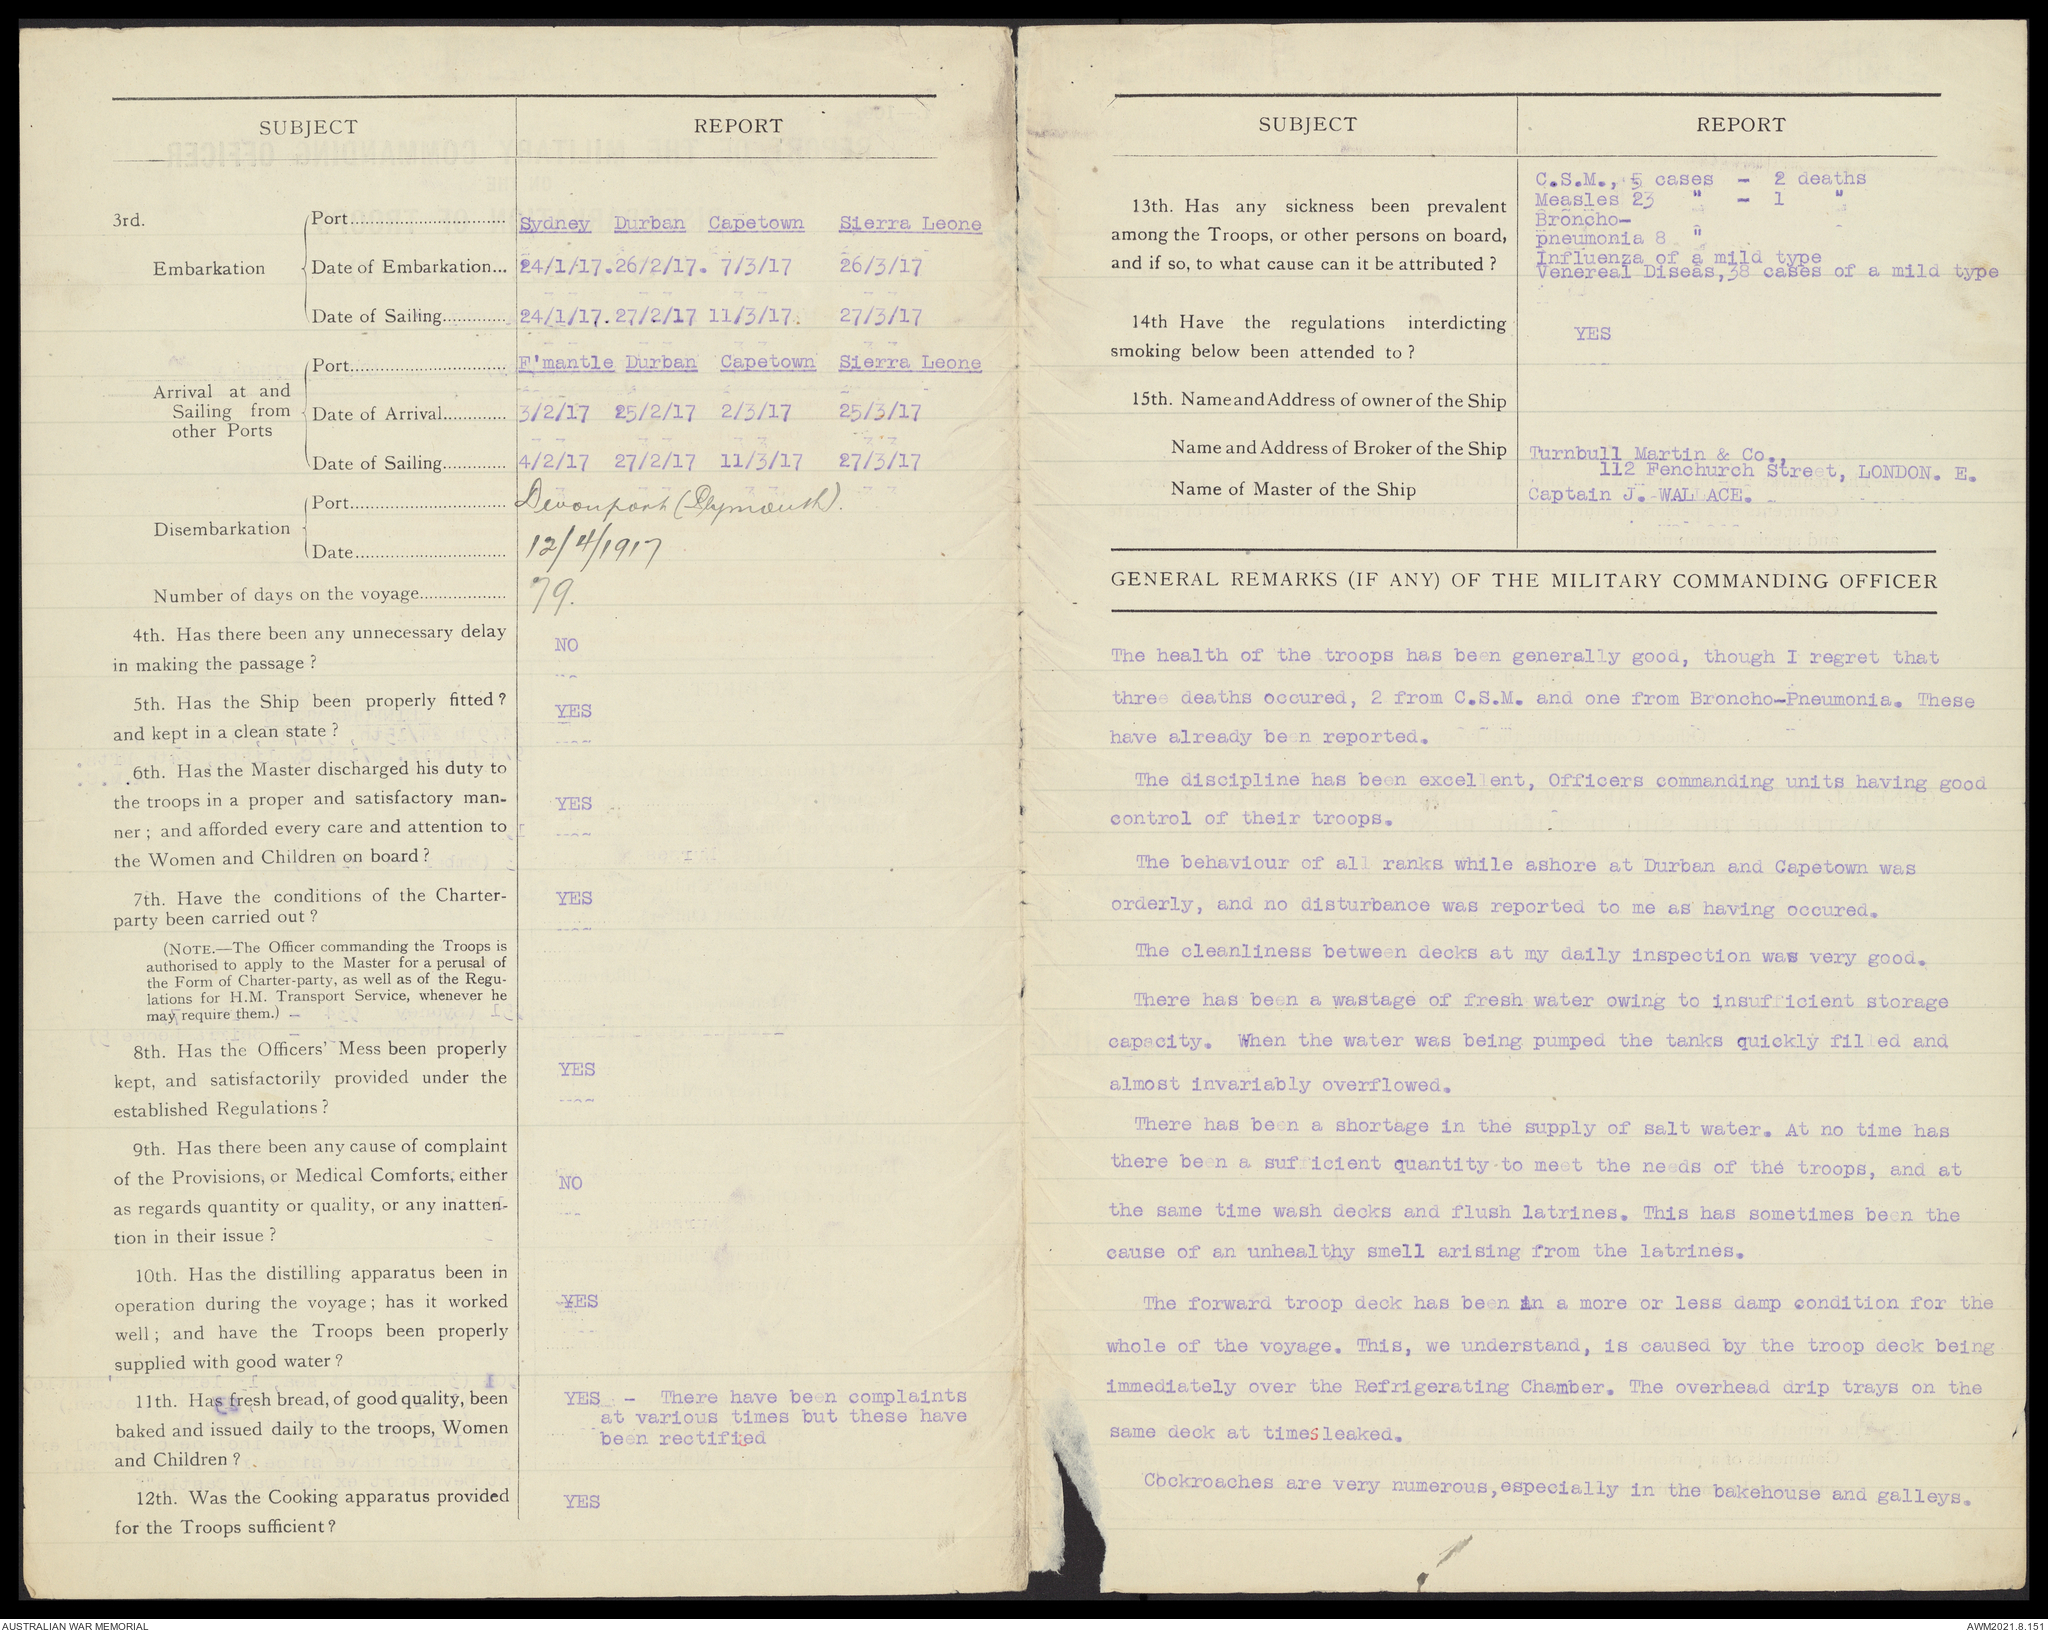 SUBJECT REPORT
3rd.
Embarkation
Port.............................. Sydney Durban Capetown Sierra Leone
Date of Embarkation... 24/1/17. 26/2/17. 7/3/17 26/3/17
Date of Sailing............. 24/1/17. 27/2/17 11/3/17. 27/3/17
Arrival at and
Sailing from
other Ports
Port.............................. F'mantle Durban Capetown Sierra Leone
Date of Arrival............ 3/2/17 25/2/17 2/3/17 25/3/17
Date of Sailing............ 4/2/17 27/2/17 11/3/17 27/3/17
Disembarkation
Port.............................. Devonport (Plymouth).
Date.............................. 12/4/1917
Number of days on the voyage.................. 79.
4th. Has there been any unnecessary delay
in making the passage ?
NO
5th. Has the Ship been properly fitted ?
and kept in a clean state ?
YES
6th. Has the Master discharged his duty to
the troops in a proper and satisfactory man-
ner ; and afforded every care and attention to
the Women and Children on board ?
YES
7th. Have the conditions of the Charter-
party been carried out ?
YES
(NOTE.—The Officer commanding the Troops is
authorised to apply to the Master for a perusal of
the Form of Charter-party, as well as of the Regu-
lations for H.M. Transport Service, whenever he
may require them.)
8th. Has the Officers' Mess been properly
kept, and satisfactorily provided under the
established Regulations ?
YES
9th. Has there been any cause of complaint
of the Provisions, or Medical Comforts, either
as regards quantity or quality, or any inatten-
tion in their issue ?
NO
10th. Has the distilling apparatus been in
operation during the voyage ; has it worked
well ; and have the Troops been properly
supplied with good water ?
YES
11th. Has fresh bread, of good quality, been
baked and issued daily to the troops, Women
and Children ?
YES - There have been complaints
at various times but these have
been rectified
12th. Was the Cooking apparatus provided
for the Troops sufficient ?
YES
SUBJECT REPORT
13th. Has any sickness been prevalent
among the Troops, or other persons on board,
and if so, to what cause can it be attributed ?
C.S.M., 5 cases - 2 deaths
Measles 23 " - 1 "
Broncho-
pneumonia 8 "
Influenza of a mild type
Venereal Diseas, 38 cases of a mild type
14th Have the regulations interdicting
smoking below been attended to ?
YES
15th. Name and Address of owner of the Ship
Name and Address of Broker of the Ship
Turnbull Martin & Co.,
112 Fenchurch Street, LONDON. E.
Name of Master of the Ship Captain J. WALLACE.
GENERAL REMARKS (IF ANY) OF THE MILITARY COMMANDING OFFICER
The health of the troops has been generally good, though I regret that
three deaths occured, 2 from C.S.M. and one from Broncho-Pneumonia. These
have already been reported.
The discipline has been excellent, Officers commanding units having good
control of their troops.
The behaviour of all ranks while ashore at Durban and Capetown was
orderly, and no disturbance was reported to me as having occured.
The cleanliness between decks at my daily inspection was very good.
There has been a wastage of fresh water owing to insufficient storage
capacity. When the water was being pumped the tanks quickly filled and
almost invariably overflowed.
There has been a shortage in the supply of salt water. At no time has
there been a sufficient quantity to meet the needs of the troops, and at
the same time wash decks and flush latrines. This has sometimes been the
cause of an unhealthy smell arising from the latrines.
The forward troop deck has been in a more or less damp condition for the
whole of the voyage. This, we understand, is caused by the troop deck being
immediately over the Refrigerating Chamber. The overhead drip trays on the
same deck at times leaked.
Cockroaches are very numerous, especially in the bakehouse and galleys.
AUSTRALIAN WAR MEMORIAL AWM2021.8.151